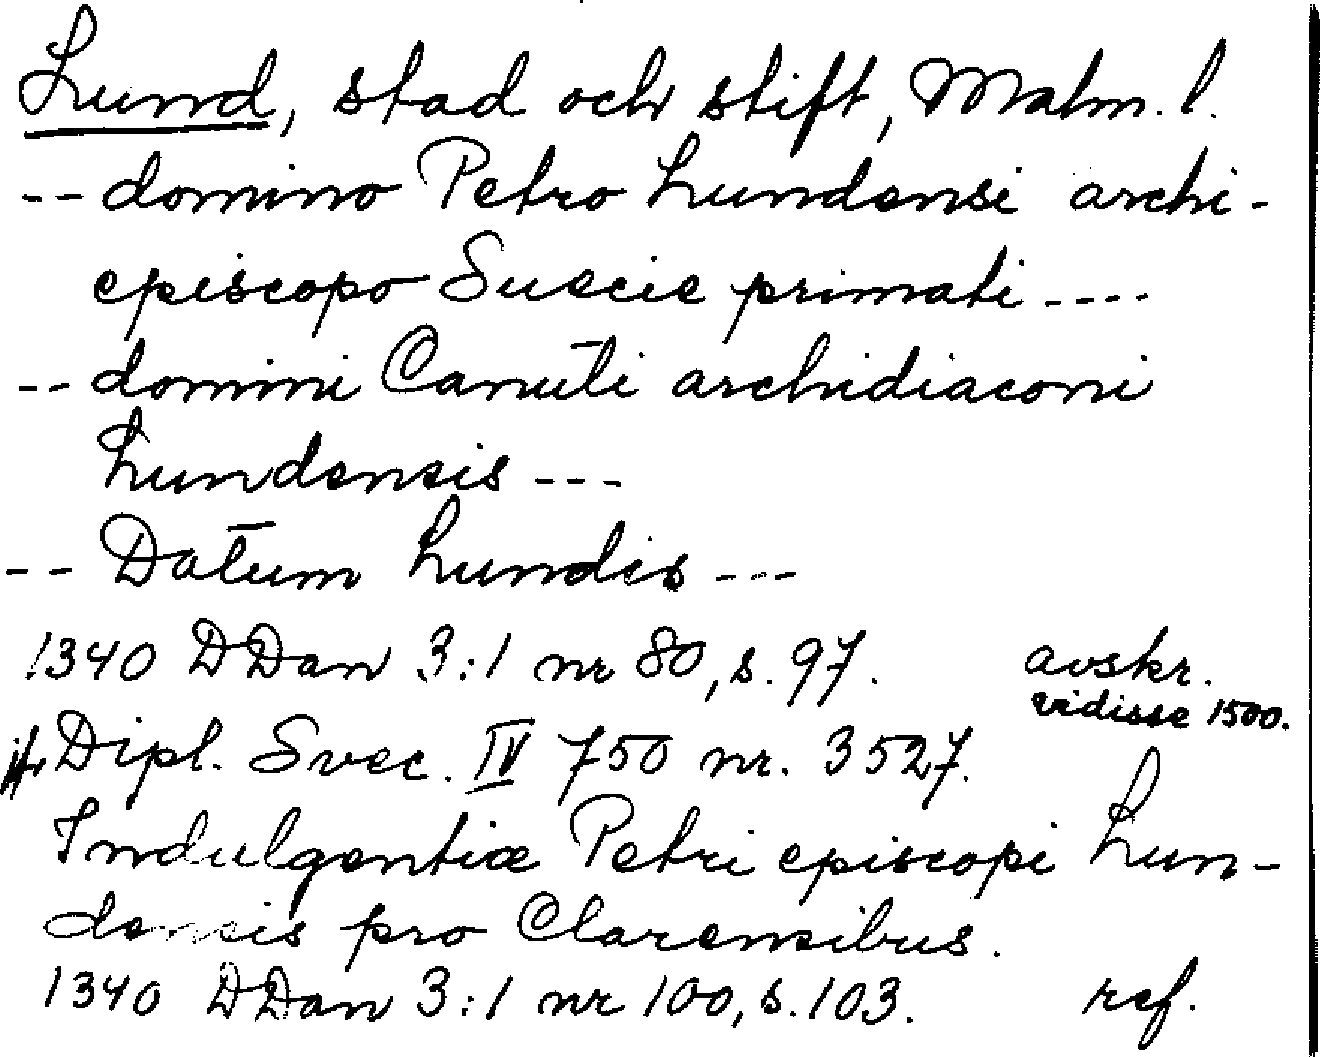 Lund, stad och stift, Malm. l.
-- domino Petro Lundensi archi-
episcopo Suecie primati ----
-- domini Canuti archidiaconi
Lundensis ---
-- Datum Lundis ---
1340 DDan 3:1 nr 80, s. 97. avskr.
vidisse 1500.
jfr Dipl. Svec. IV 750 nr. 3527.
Indulgentiæ Petri episcopi Lun-
densis pro Clarensibus.
1340 DDan 3:1 nr 100, s. 103. ref.